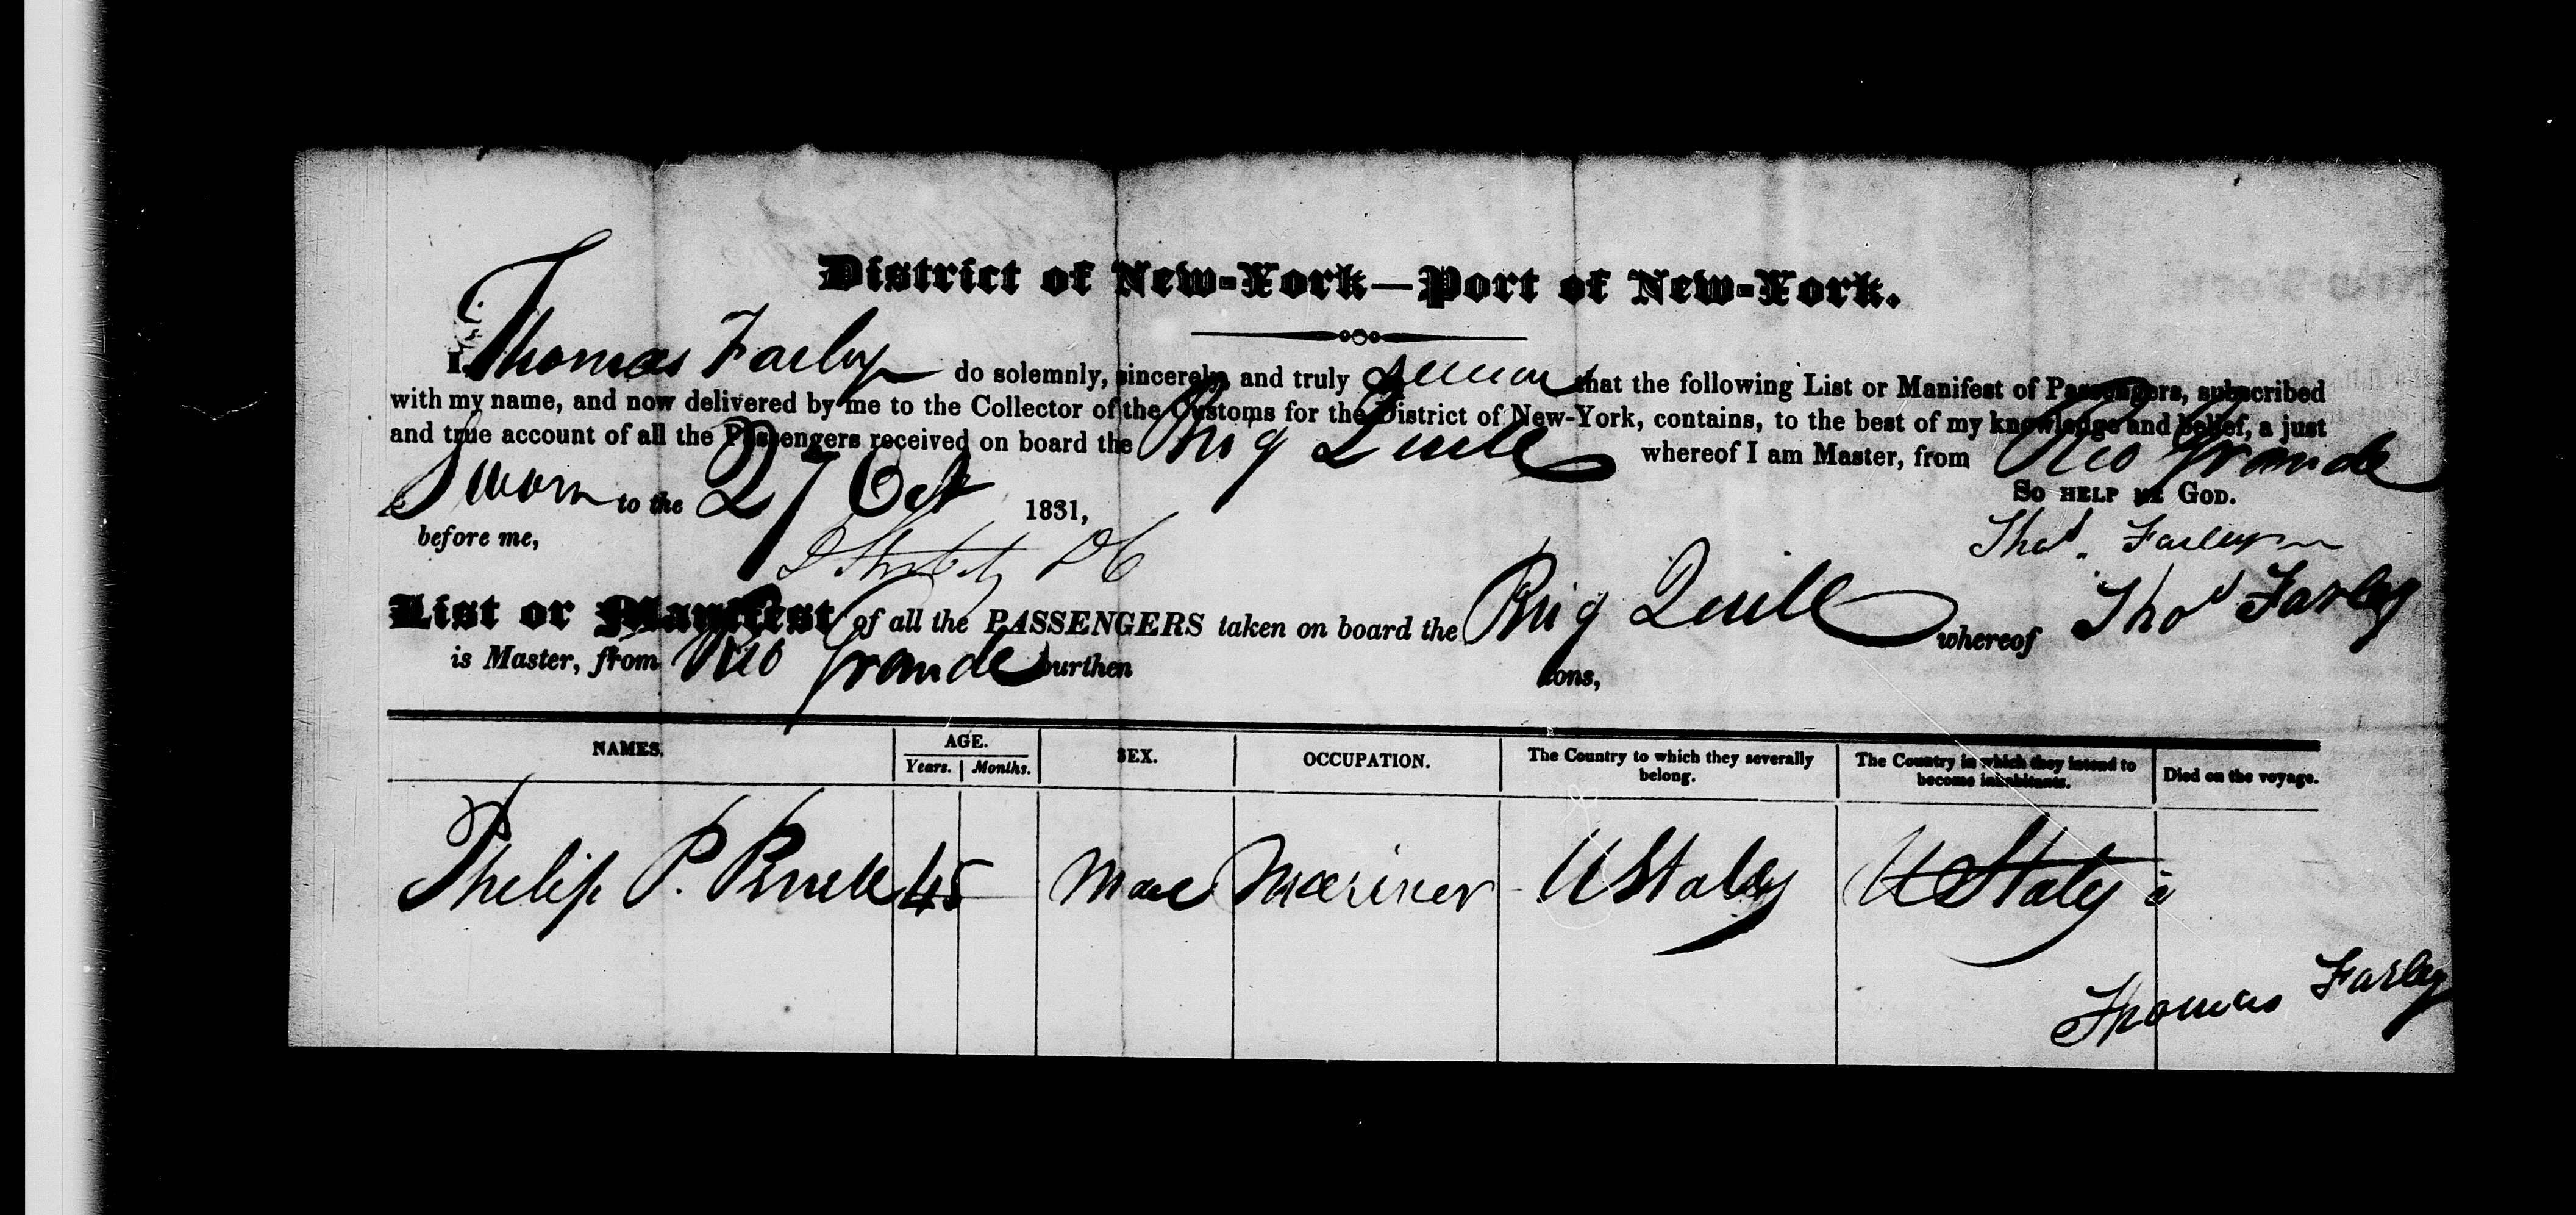 District of New-York—Port of New-York.
I, Thomas Farley do solemnly, sincerely and truly swear that the following List or Manifest of Passengers, subscribed
with my name, and now delivered by me to the Collector of the Customs for the District of New-York, contains, to the best of my knowledge and belief, a just
and true account of all the Passengers received on board the Brig Quill whereof I am Master, from Rio Grande
Sworn to the 27 Oct 1831, So help me God.
before me, Thos. Farley
List or Manifest of all the PASSENGERS taken on board the Brig Quill whereof Thos Farley
is Master, from Rio Grande burthen tons,
NAMES. AGE. SEX. OCCUPATION. The Country to which they severally belong. The Country in which they intend to become inhabitants. Died on the voyage.
Years. Months.
Philip P. 45 Male Mariner U States U States
Thomas Farley